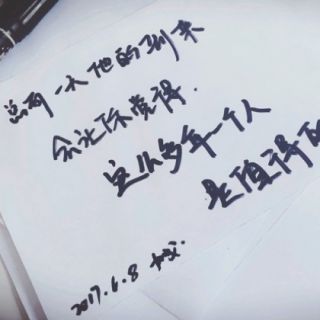 总有一天他的到来
会让你觉得
这么多年一个人
是值得的
2017.6.8